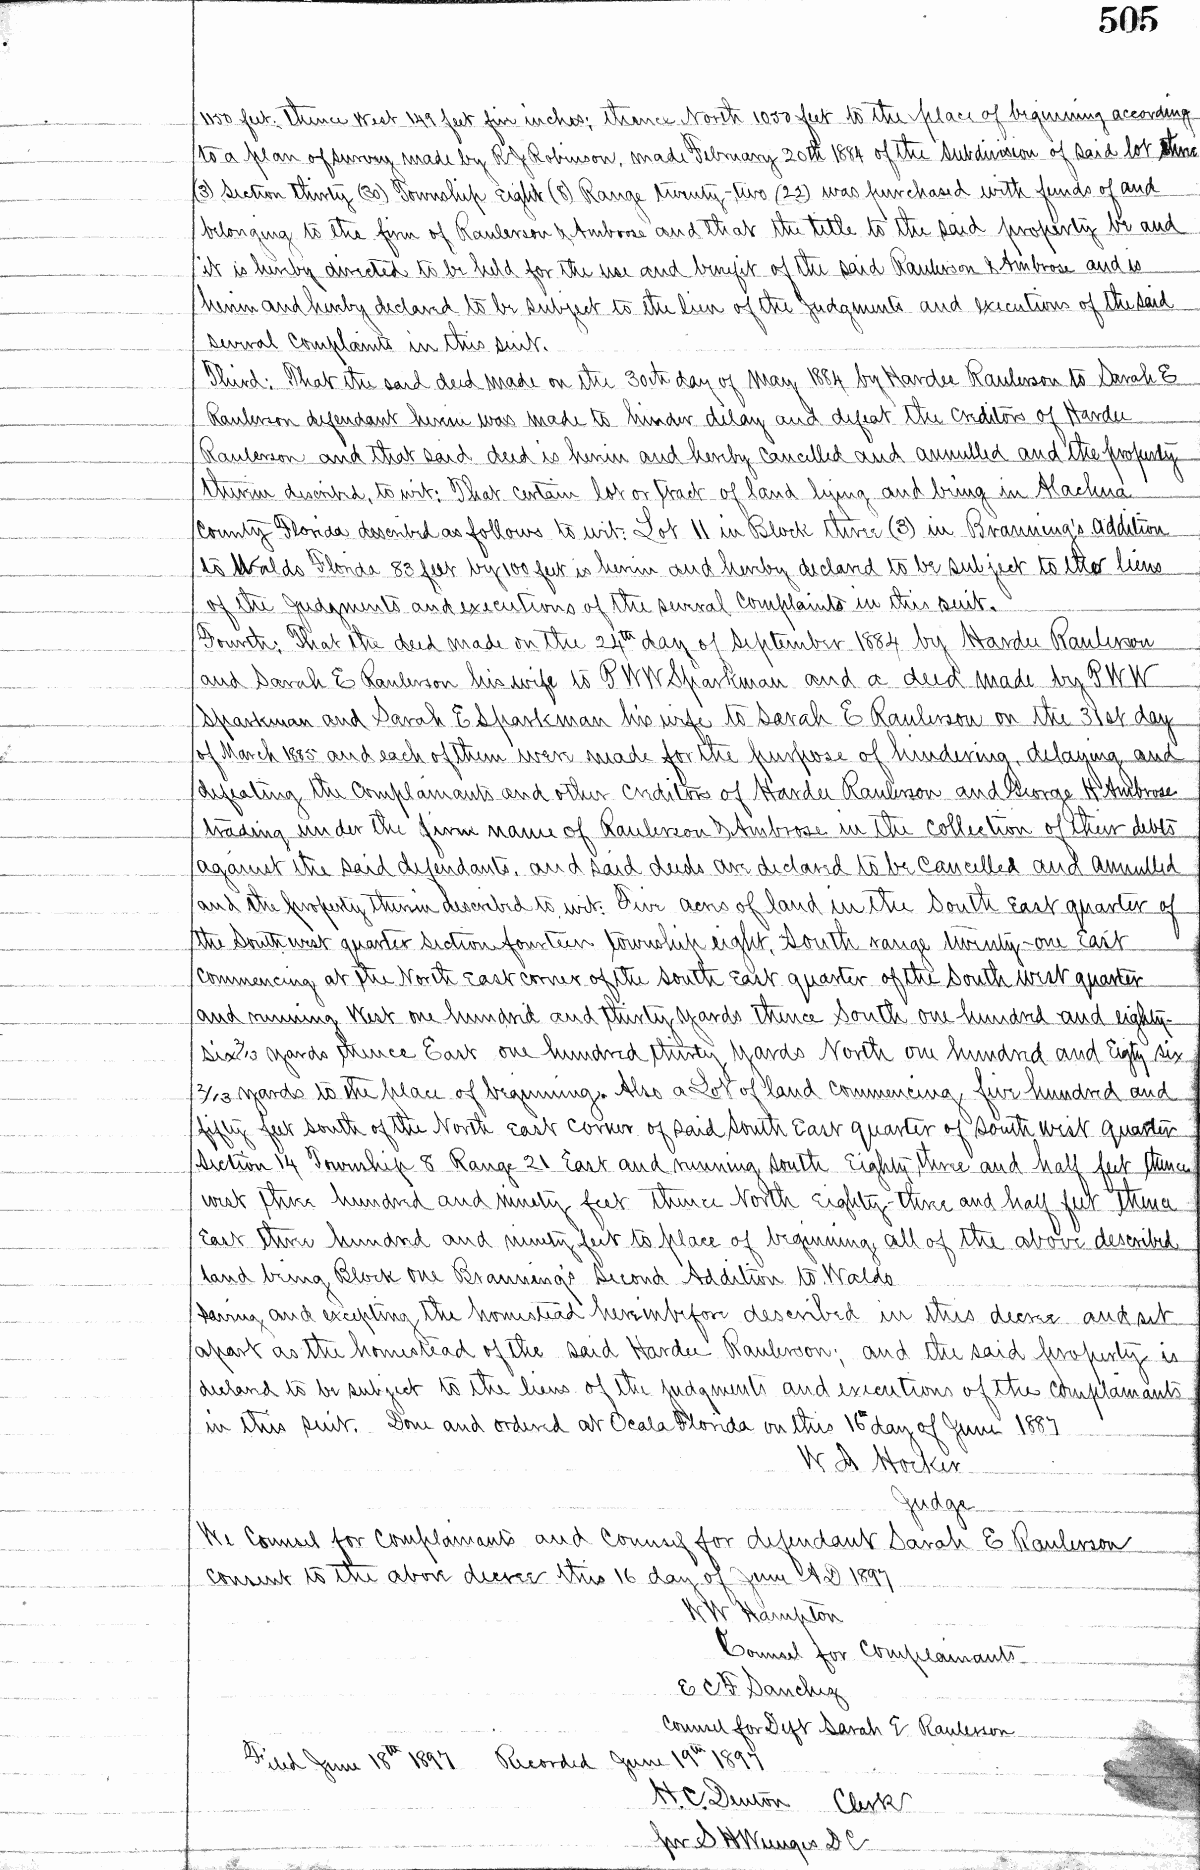 505
1150 feet. Thence West 149 feet five inches; thence North 1050 feet to the place of beginning according
to a plan of survey made by R J Robinson, made February 20th 1884 of the subdivision of said lot three
(3) Section thirty (30) Township Eight (8) Range twenty-two (22) was purchased with funds of and
belonging to the firm of Raulerson & Ambrose and that the title to the said property be and
it is hereby directed to be held for the use and benefit of the said Raulerson & Ambrose and is
herein and hereby declared to be subject to the lien of the Judgments and executions of the said
several complaints in this suit.
Third: That the said deed made on the 30th day of May 1884 by Hardee Raulerson to Sarah E
Raulerson defendant herein was made to hinder delay and defeat the creditors of Hardee
Raulerson and that said deed is herein and hereby cancelled and annulled and the property
therein described, to wit: That certain lot or tract of land lying and being in Alachua
County Florida described as follows to wit: Lot 11 in Block three (3) in Branning's addition
to Waldo Florida 83 feet by 100 feet is herein and hereby declared to be subject to the liens
of the Judgments and executions of the several complaints in this suit.
Fourth: That the deed made on the 24th day of September 1884 by Hardee Raulerson
and Sarah E Raulerson his wife to P W W Sparkman and a deed made by P W W
Sparkman and Sarah E Sparkman his wife to Sarah E Raulerson on the 31st day
of March 1885 and each of them were made for the purpose of hindering, delaying and
defeating the Complainants and other creditors of Hardee Raulerson and George H Ambrose
trading under the firm name of Raulerson & Ambrose in the collection of their debts
against the said defendants, and said deeds are declared to be cancelled and annulled
and the property therein described to wit: Five acres of land in the South East quarter of
the South west quarter section fourteen township eight, South range twenty-one East
commencing at the North East corner of the South East quarter of the South west quarter
and running West one hundred and thirty yards thence South one hundred and eighty-
six 2/13 yards thence East one hundred thirty yards North one hundred and Eigty six
2/13 yards to the place of beginning. Also a Lot of land commencing five hundred and
fifty feet south of the North East corner of said South East quarter of South west quarter
Section 14 Township 8 Range 21 East and running south Eighty three and half feet thence
west three hundred and ninety feet thence North Eighty-three and half feet thence
East three hundred and ninety feet to place of beginning all of the above described
land being Block one Branning's Second Addition to Waldo
saving and excepting the homestead hereinbefore described in this decree and set
apart as the homestead of the said Hardee Raulerson; and the said property is
declared to be subject to the liens of the judgments and executions of the complainants
in this suit. Done and ordered at Ocala Florida on this 16th day of June 1887
W A Hocker
Judge
We Counsel for Complainants and Counsel for defendant Sarah E Raulerson
consent to the above decree this 16 day of June A D 1897
W W Hampton
Counsel for Complainants
E C F Sanchez
Counsel for Deft Sarah E Raulerson
Filed June 18th 1897 Recorded June 19th 1897
H. C. Denton Clerk
per S H Wienges D C